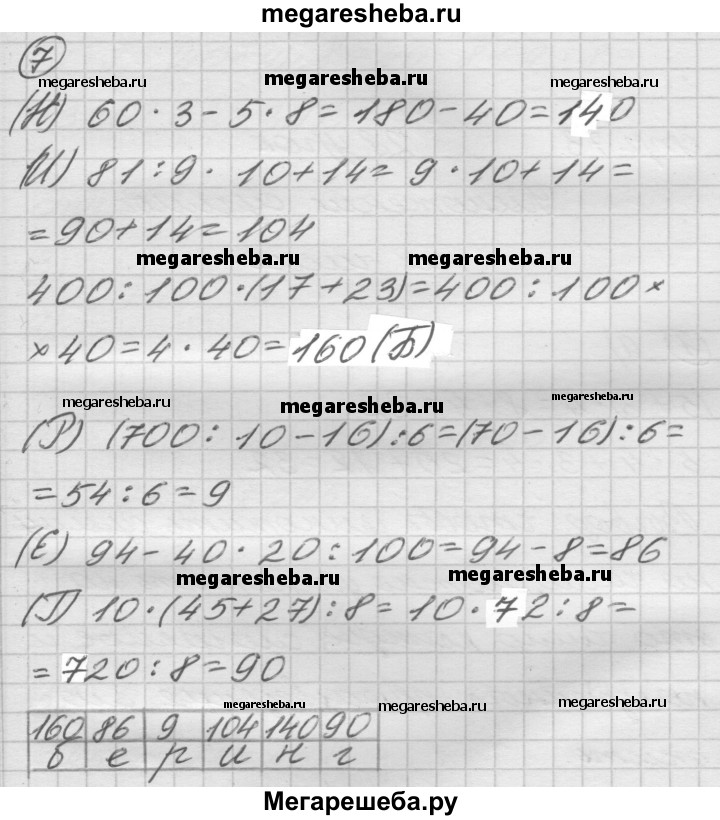 megaresheba.ru
7
megaresheba.ru megaresheba.ru megaresheba.ru
(Н) 60 · 3 - 5 · 8 = 180 - 40 = 140
(И) 81 : 9 · 10 + 14 = 9 · 10 + 14 =
= 90 + 14 = 104
megaresheba.ru megaresheba.ru
400 : 100 · (17 + 23) = 400 : 100 ×
× 40 = 4 · 40 = 160 (Б)
megaresheba.ru megaresheba.ru megaresheba.ru
(Р) (700 : 10 - 16) : 6 = (70 - 16) : 6 =
= 54 : 6 = 9
(Е) 94 - 40 · 20 : 100 = 94 - 8 = 86
megaresheba.ru megaresheba.ru
(Г) 10 · (45 + 27) : 8 = 10 · 72 : 8 =
= 720 : 8 = 90
megaresheba.ru megaresheba.ru megaresheba.ru
160 86 9 104 140 90
б е р и н г
Мегарешеба.ру